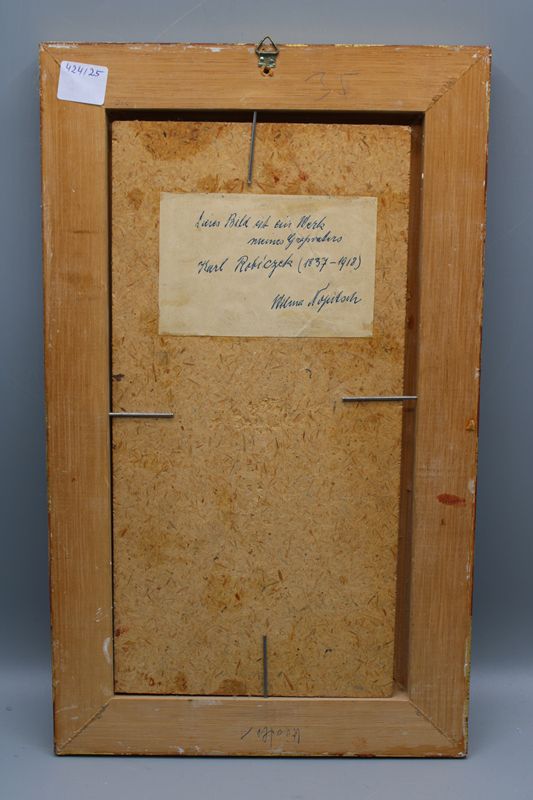 424/25
35
Dieses Bild ist ein Werk
meines Großvaters
Karl Robiczek (1837-1918)
Wilma Nopitsch